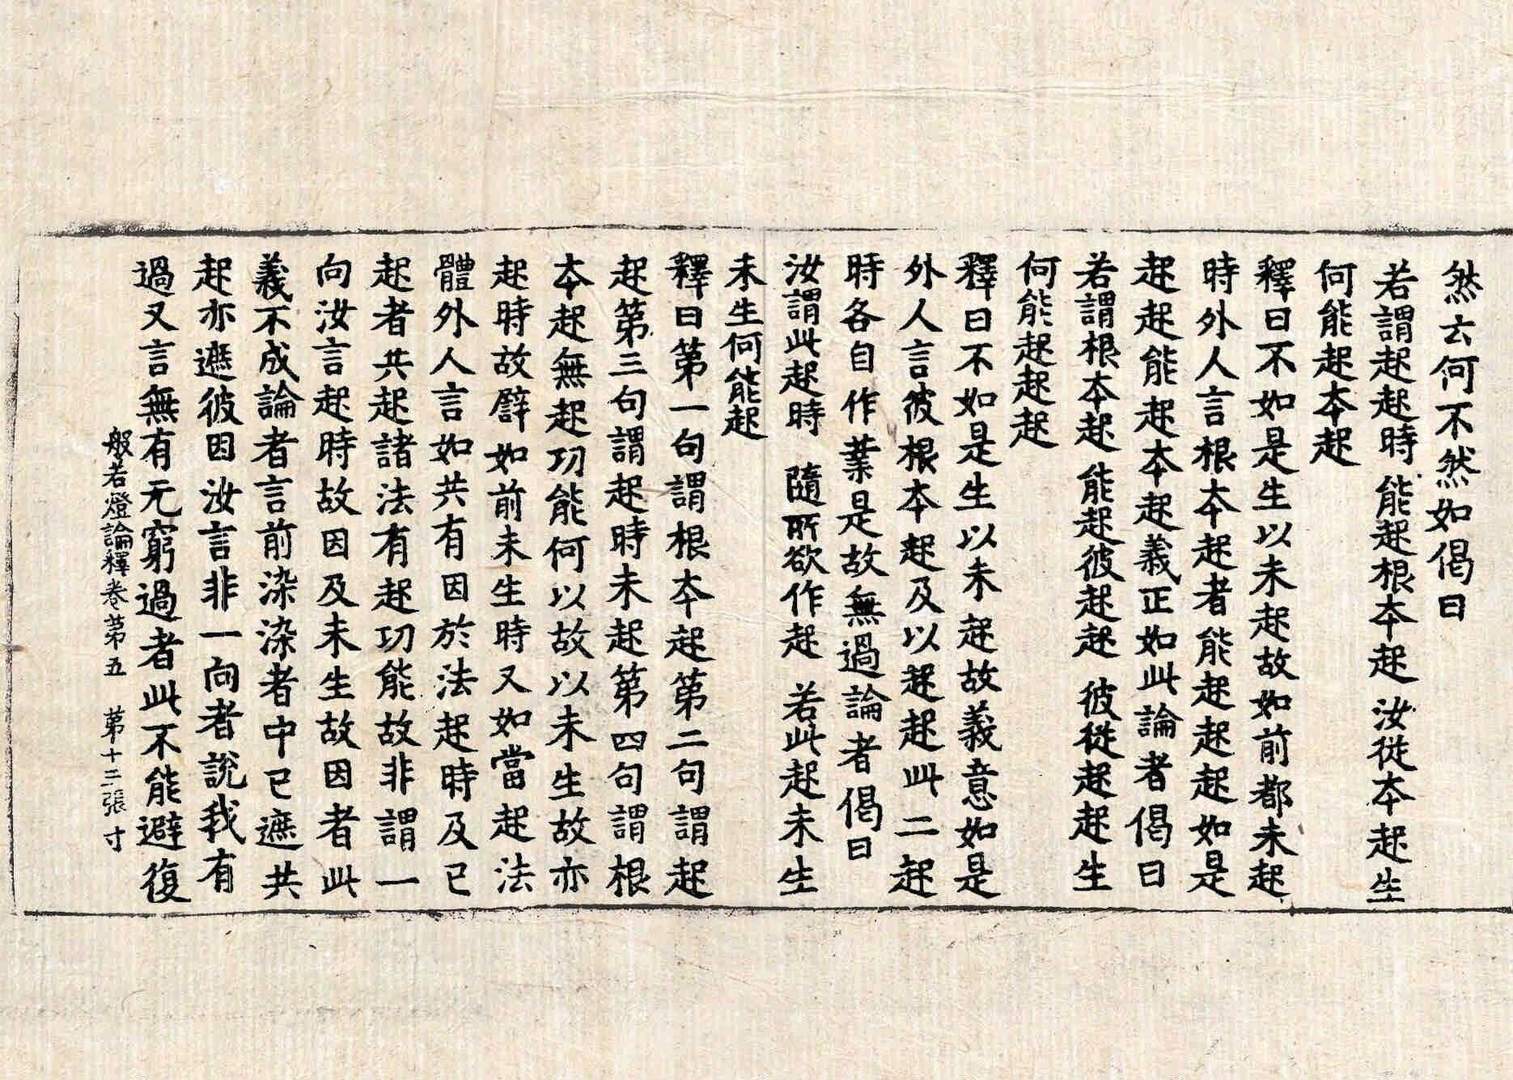 然云何不然如偈曰
若謂起起時 能起根夲起 汝從夲起生
何能起夲起
釋曰不如是生以未起故如前都未起
時外人言根夲起者能起起起如是
起起能起夲起義正如此論者偈曰
若謂根夲起 能起彼起起 彼從起起生
何能起起起
釋曰不如是生以未起故義意如是
外人言彼根夲起及以起起此二起
時各自作業是故無過論者偈曰
汝謂此起時 隨所欲作起 若此起未生
未生何能起
釋曰第一句謂根夲起第二句謂起
起第三句謂起時未起第四句謂根
夲起無起功能何以故以未生故亦
起時故譬如前未生時又如當起法
體外人言如共有因於法起時及已
起者共起諸法有起功能故非謂一
向汝言起時故因及未生故因者此
義不成論者言前染染者中已遮共
起亦遮彼因汝言非一向者說我有
過又言無有无窮過者此不能避復
般若燈論釋卷苐五 苐十二張 寸